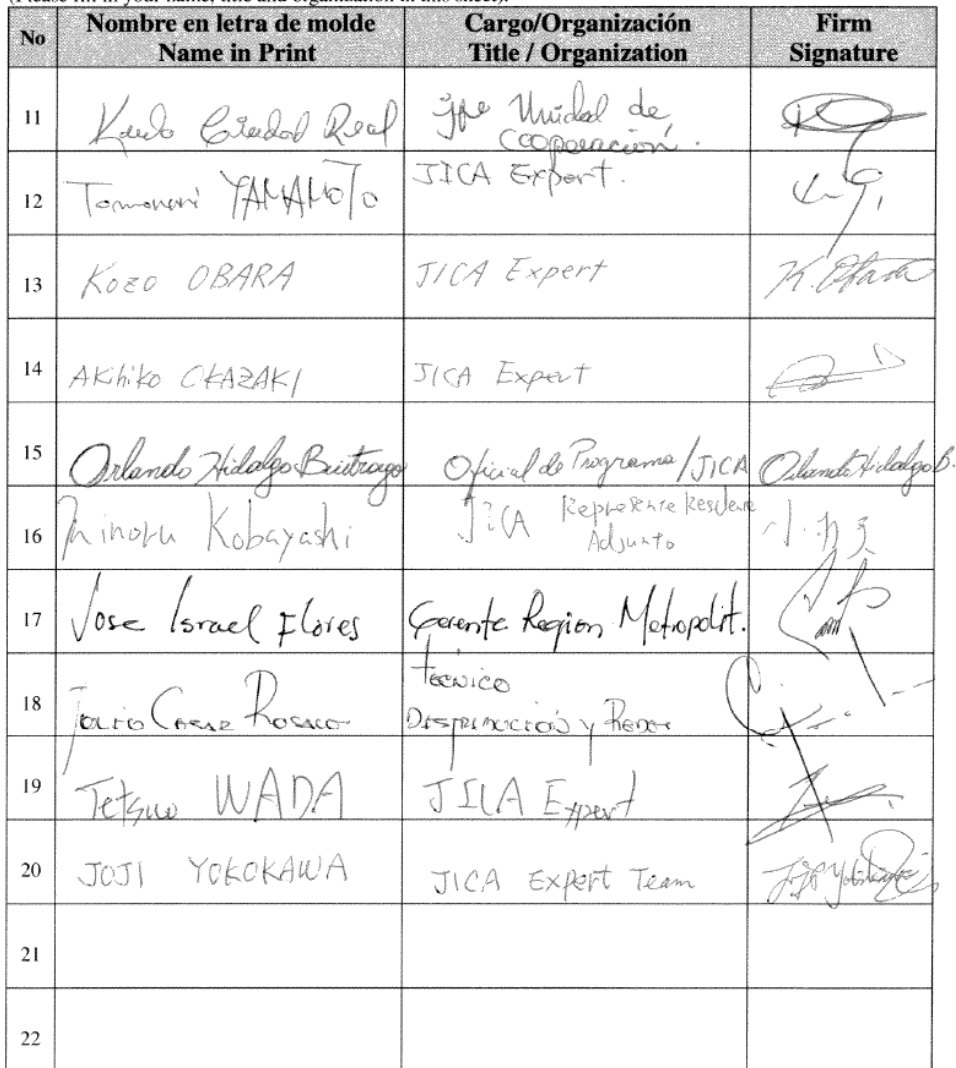 (Please fill in your name, title and organization in this sheet).
No Nombre en letra de molde Cargo/Organización Firm
Name in Print Title / Organization Signature
11 Ciudad Real Jefe Unidad de
Cooperación.
12 Tomonori YAMAMOTO JICA Expert.
13 Kozo OBARA JICA Expert K. Obara
14 Akihiko OKAZAKI JICA Expert
15 Orlando Hidalgo Buitrago Oficial de Programa/JICA Orlando Hidalgo B.
16 Minoru Kobayashi JICA Representante Residente
Adjunto
17 Jose Israel Flores Gerente Region Metropolit.
18 Técnico
Cesar y
19 Tetsuo WADA JICA Expert
20 JOJI YOKOKAWA JICA Expert Team
21
22